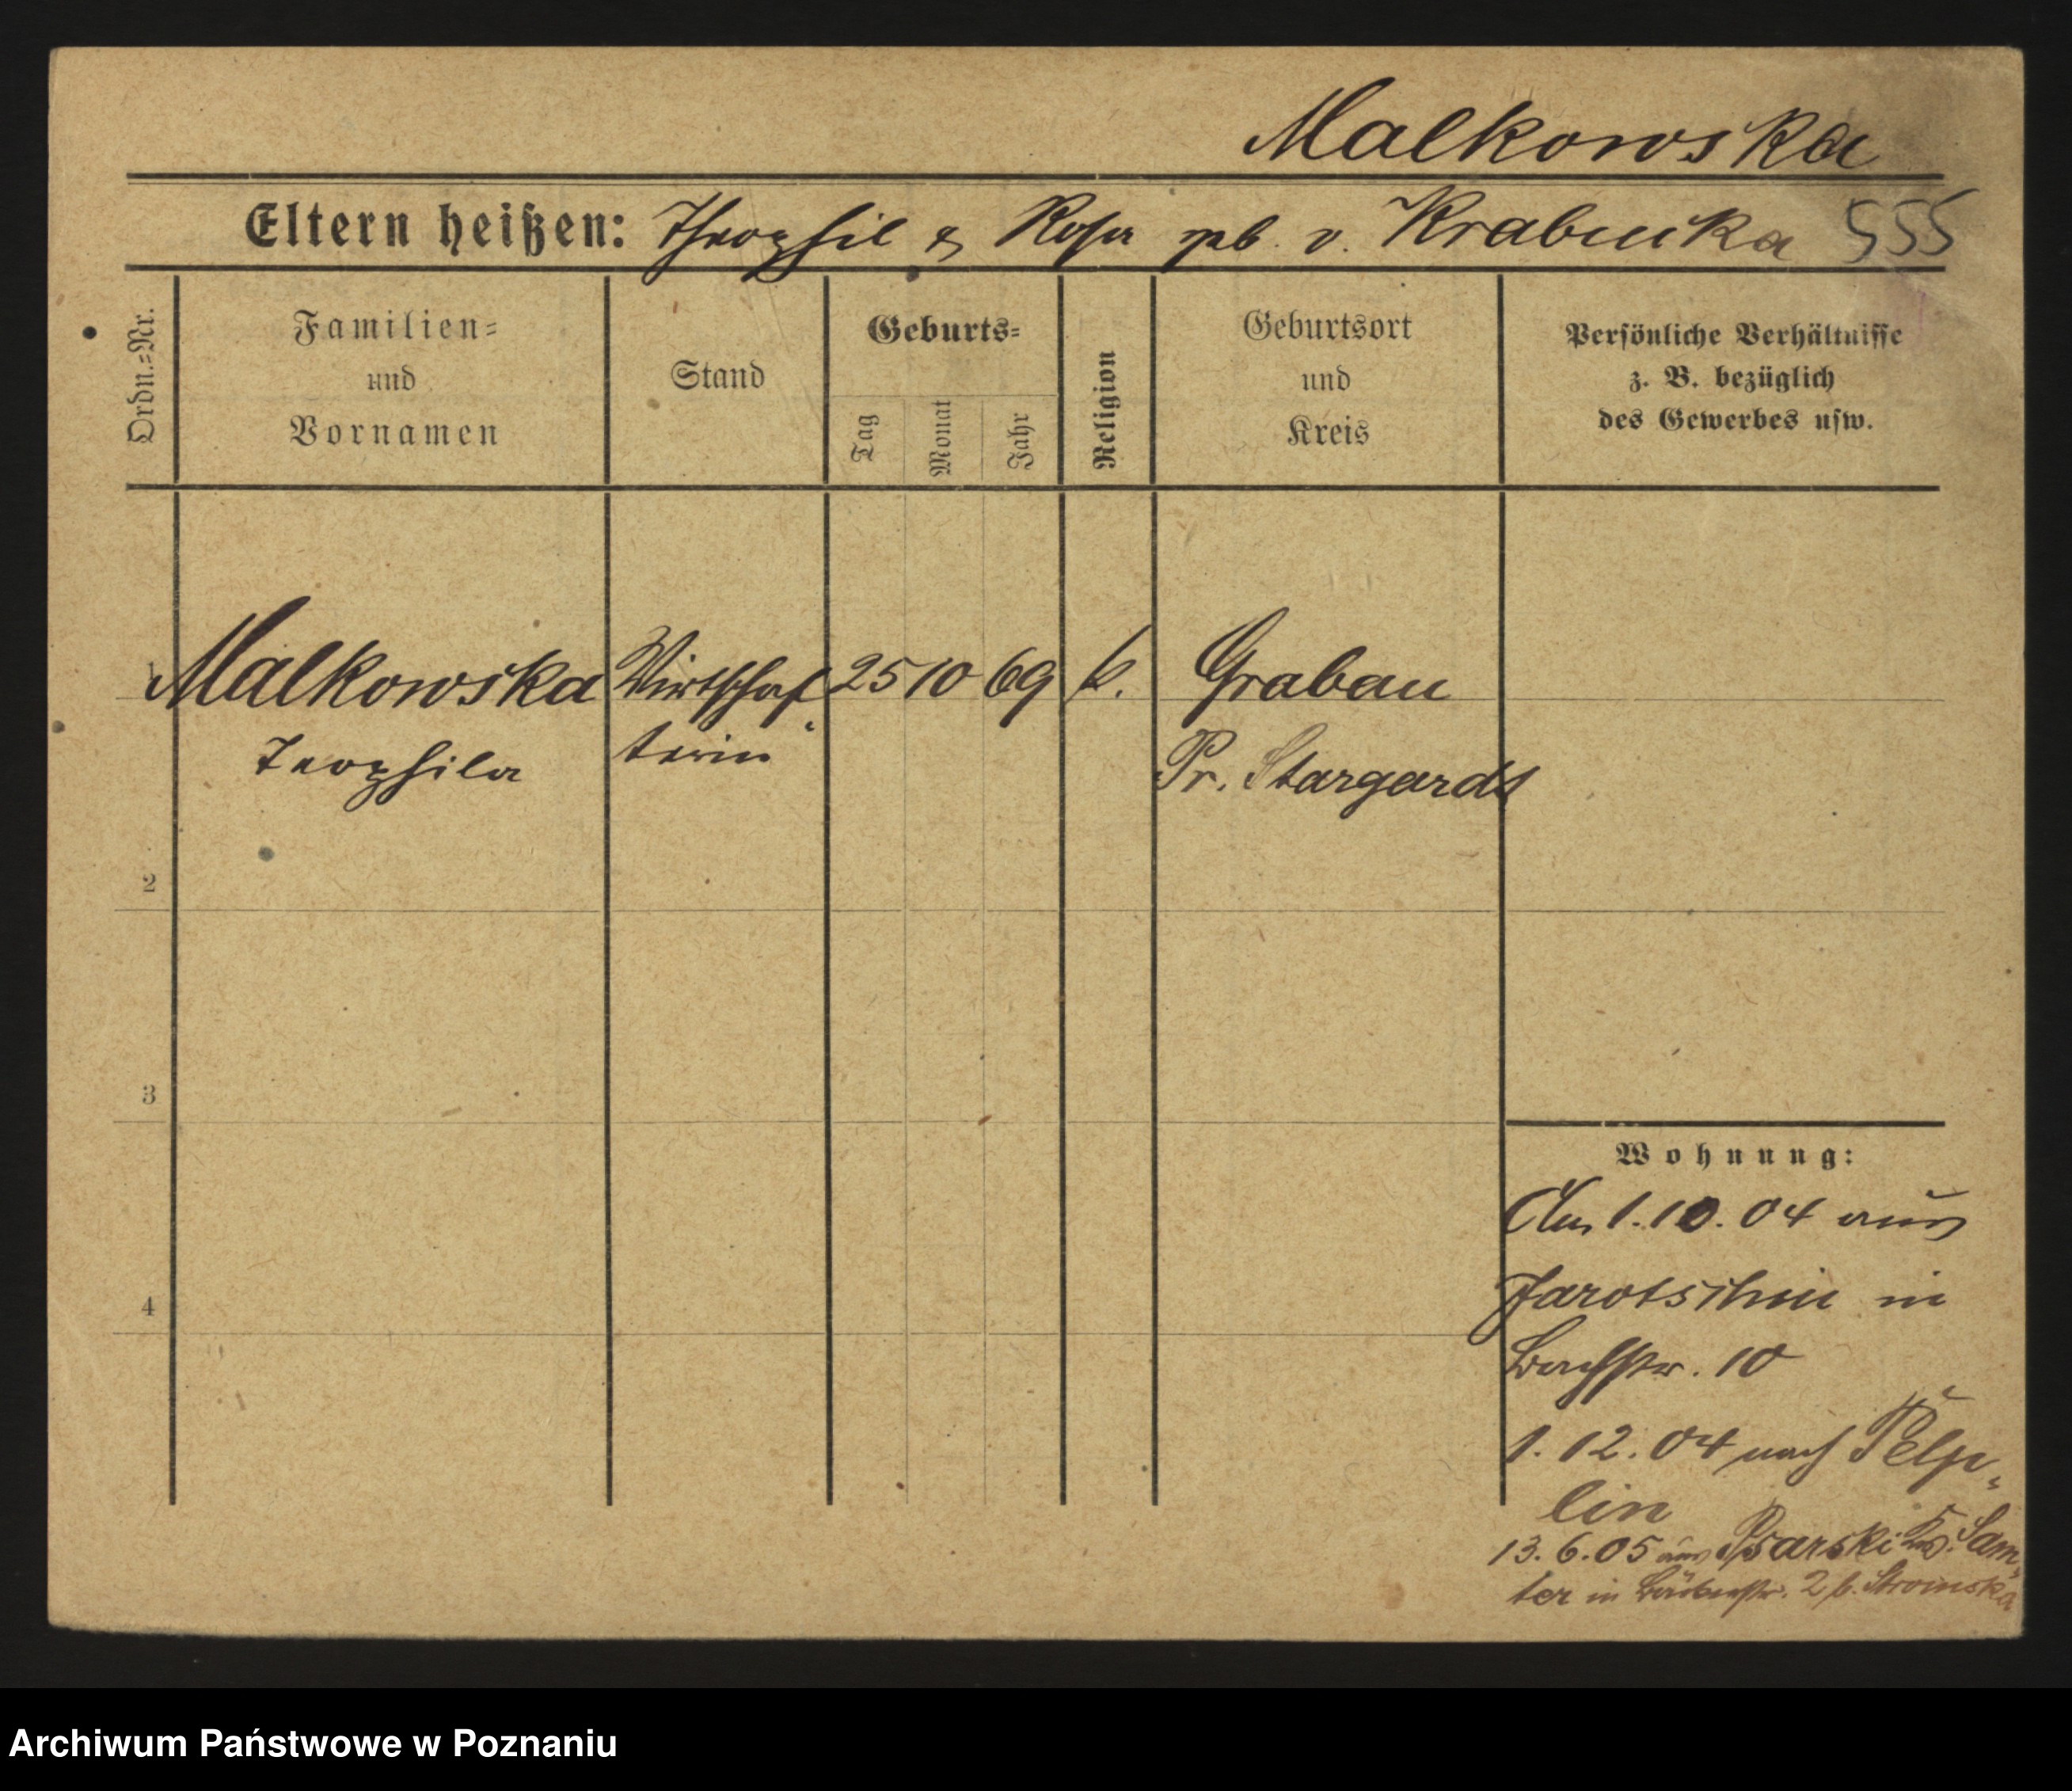 Malkowska
Eltern heißen: Theophil & Rosa geb. v. Krabuika 555
Ordn.=Nr.
Familien=
und
Vornamen
Stand
Geburts=
Tag
Monat
Jahr
Religion
Geburtsort
und
Kreis
Persönliche Verhältnisse
z. B. bezüglich
des Gewerbes usw.
1 Malkowska Wirtschaf 25 10 69 k. Grabau
Teophila terin Pr. Stargardt
2
3
4
Wohnung:
Am 1.10.04 aus
Jarotschin in
Bachstr. 10
1.12.04 nach Pelp-
lin
13.6.05 aus Psarski Krs. Sam-
ter in 2 b. Stroinska
Archiwum Państwowe w Poznaniu